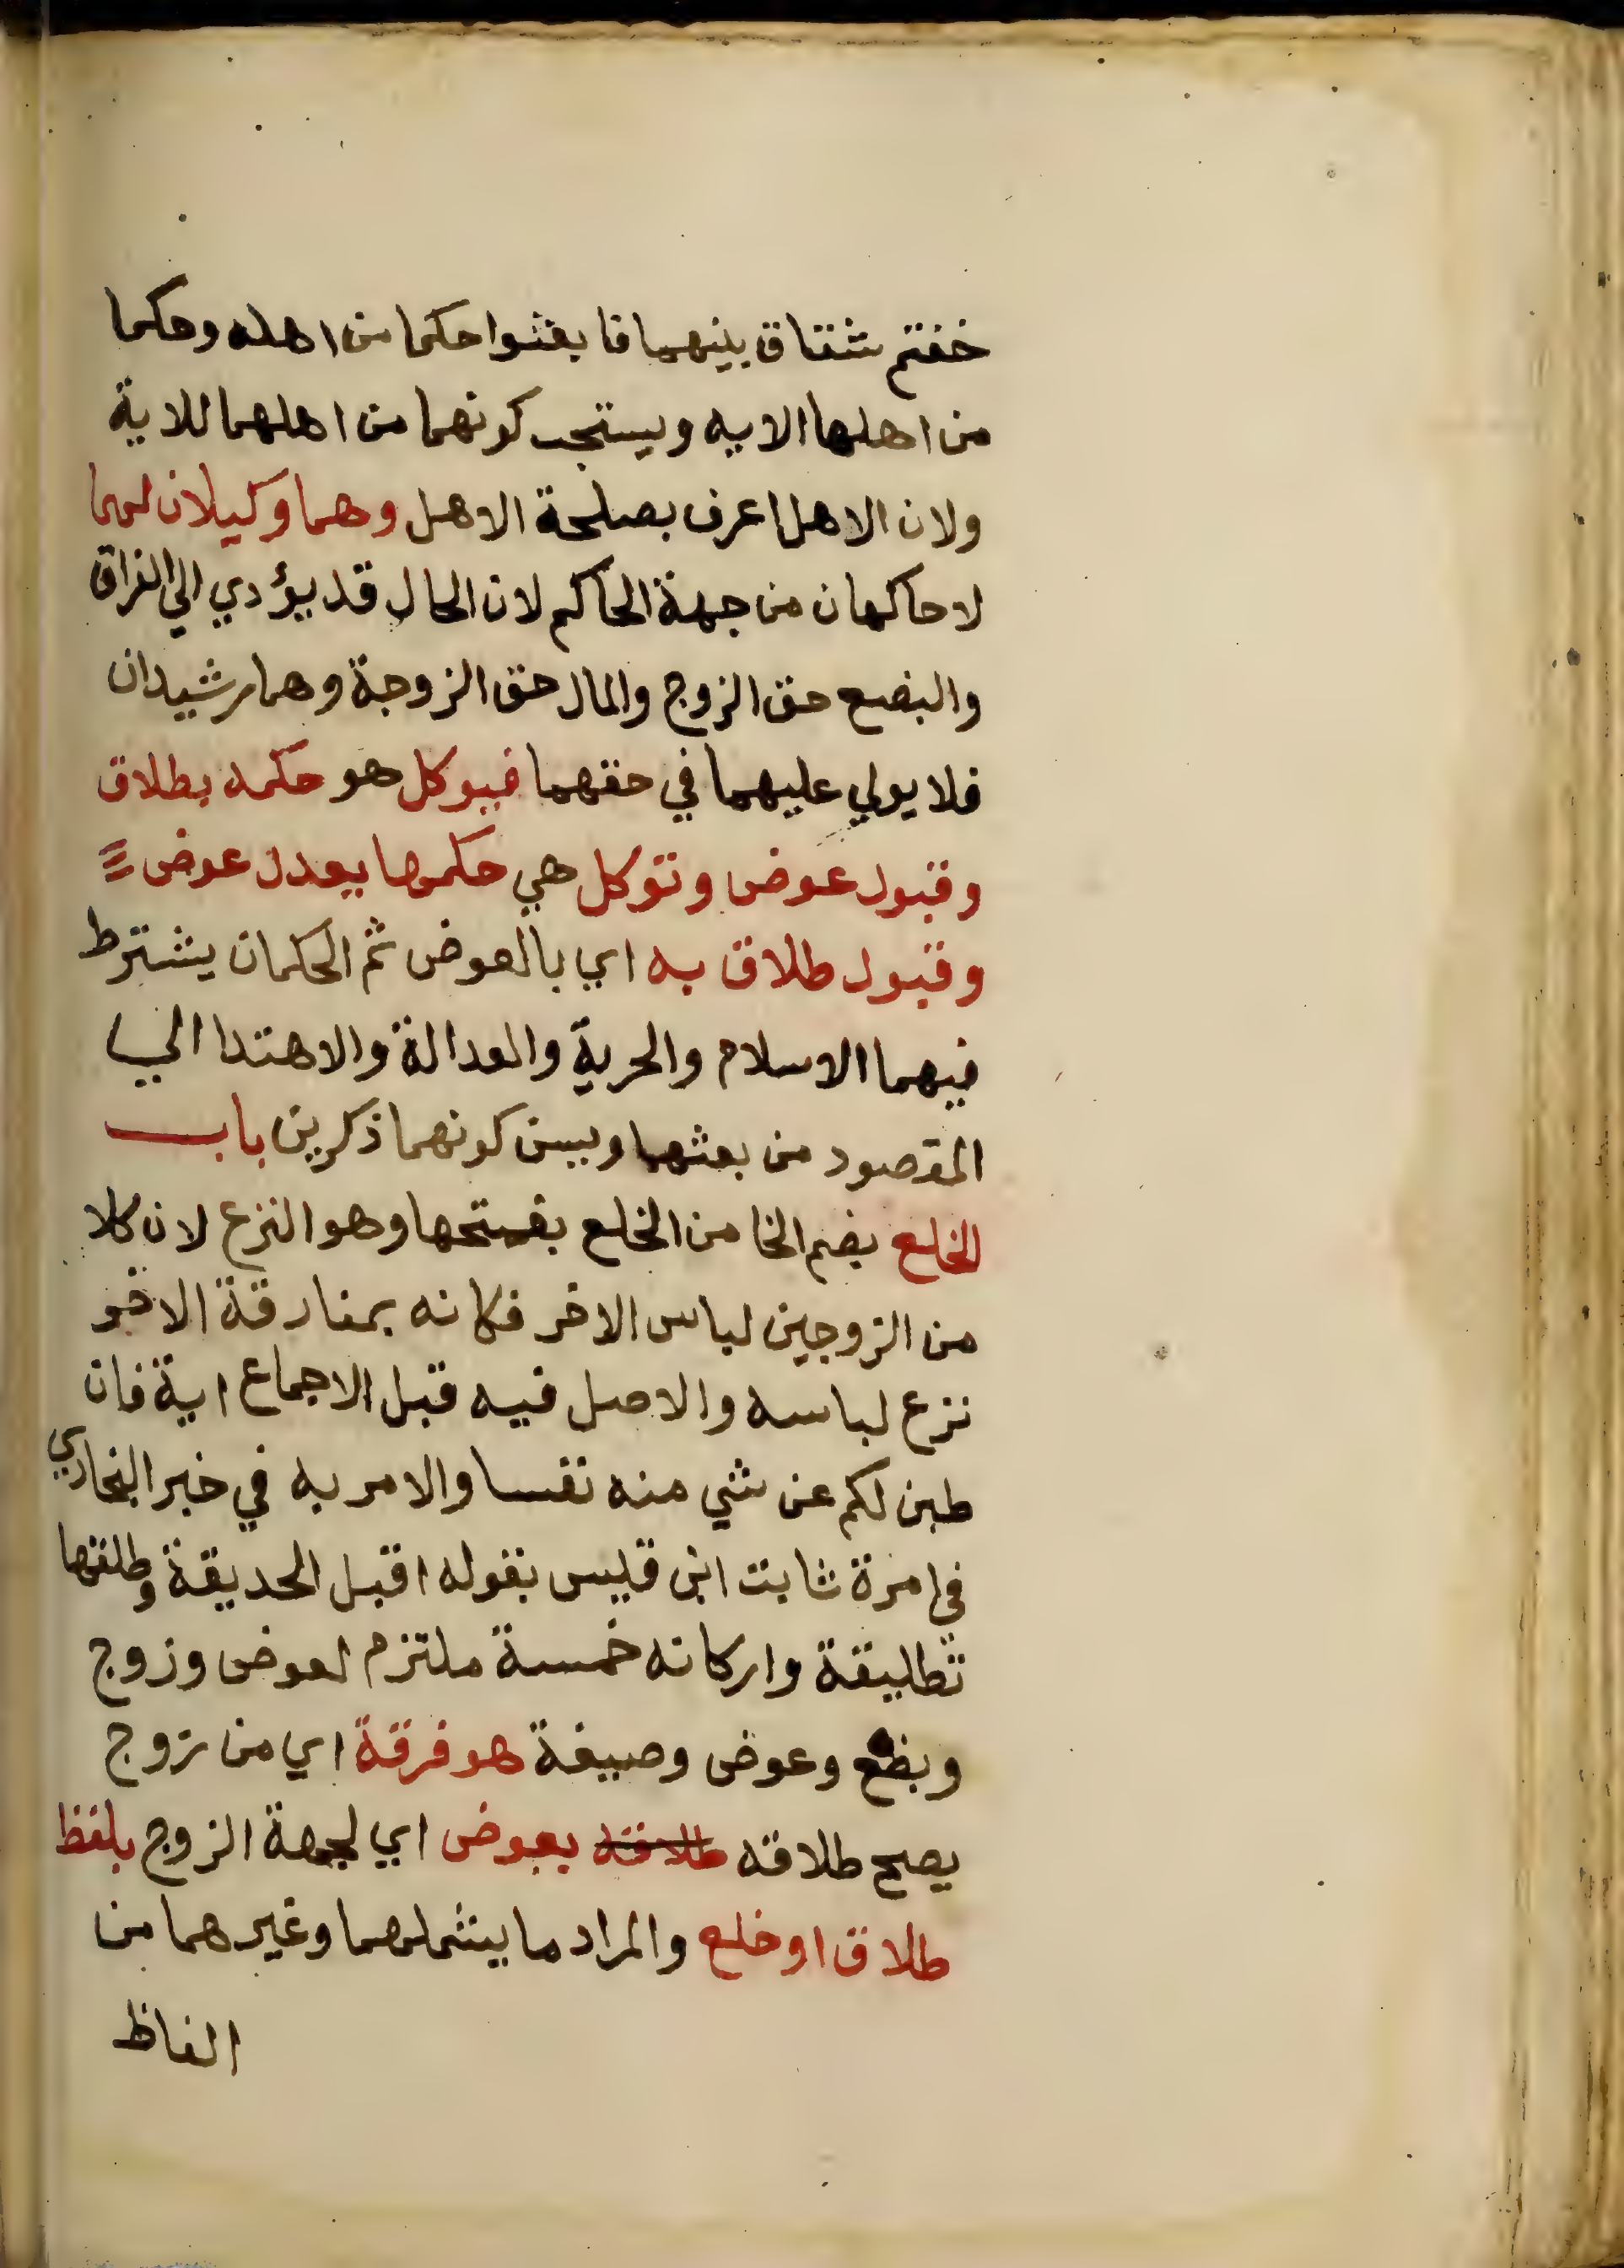 خفتم شقاق بينهما فابعثوا حكما من اهله وحكما
من اهلها الايه ويستحب كونهما من اهلهما للاية
ولان الاهل اعرف بصلحة الاهل وهما وكيلان لهما
لا حاكمان من جهة الحاكم لان الحال قد يؤدي الي الفراق
والبضع حق الزوج والمال حق الزوجة وهما رشيدان
فلا يولي عليهما في حقهما فيوكل هو حكمه بطلاق
وقبول عوض وتوكل هي حكمها ببدل عوض
وقبول طلاق به اي بالعوض ثم الحكمان يشترط
فيهما الاسلام والحرية والعدالة والاهتدا الي
المقصود من بعثهما ويسن كونهما ذكرين باب
الخلع بضم الخا من الخلع بفتحها وهو النزع لان كلا
من الزوجين لباس الاخر فكانه بمفارقة الاخر
نزع لباسه والاصل فيه قبل الاجماع اية فان
طبن لكم عن شي منه نفسا والامر به في خبر البخاري
في امرة ثابت ابن قيس بقوله اقبل الحديقة وطلقها
تطليقة واركانه خمسة ملتزم لعوض وزوج
وبضع وعوض وصيغة هو فرقة اي من زوج
يصح طلاقه طلاقه بعوض اي لجهة الزوج بلفظ
طلاق او خلع والمراد ما يشملهما وغيرهما من
الفاظ